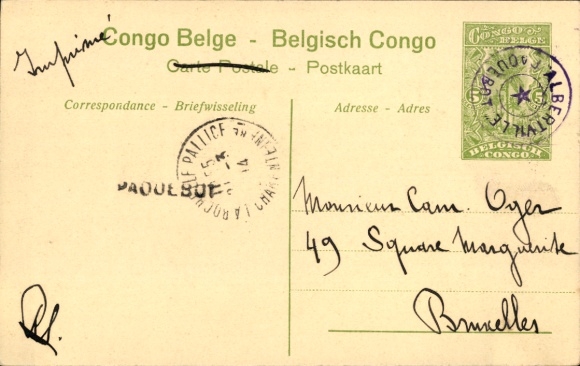 Imprimé
Congo Belge - Belgisch Congo
Carte Postale - Postkaart
Correspondance - Briefwisseling
Adresse - Adres
CONGO BELGE
5
5
BELGISCH CONGO
ALBERTVILLE
PAQUEBOT
LA ROCHELLE PALLICE
14
PAQUEBOT
Monsieur Cam. Oger
49 Square Marguerite
Bruxelles